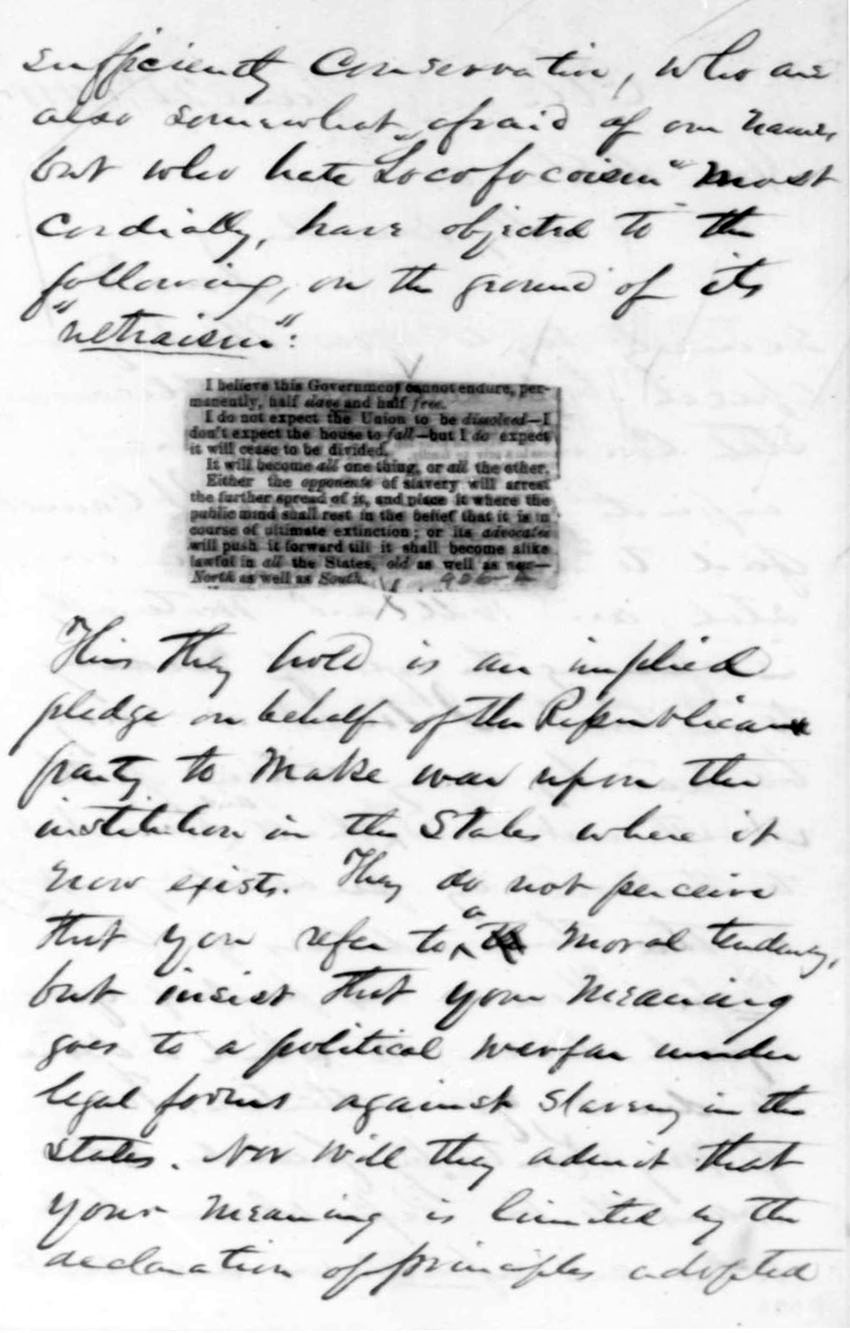 sufficiently conservative, who are
also somewhat afraid of our name,
but who hate "Locofocoism" most
cordially, have objected to the
following, on the ground of its
"ultraism":
I believe this Government cannot endure, per-
manently, half slave and half free.
I do not expect the Union to be dissolved—I
don't expect the house to fall—but I do expect
it will cease to be divided.
It will become all one thing, or all the other.
Either the opponents of slavery will arrest
the further spread of it, and place it where the
public mind shall rest in the belief that it is in
course of ultimate extinction; or its advocates
will push it forward till it shall become alike
lawful in all the States, old as well as new—
North as well as South.
This they hold is an implied
pledge on behalf of the Republican
party to make war upon the
institution in the States where it
now exists. They do not perceive
that you refer to a moral tendency,
but insist that your meaning
goes to a political warfare under
legal forms against slavery in the
states. Nor will they admit that
your meaning is limited by the
declaration of principles adopted